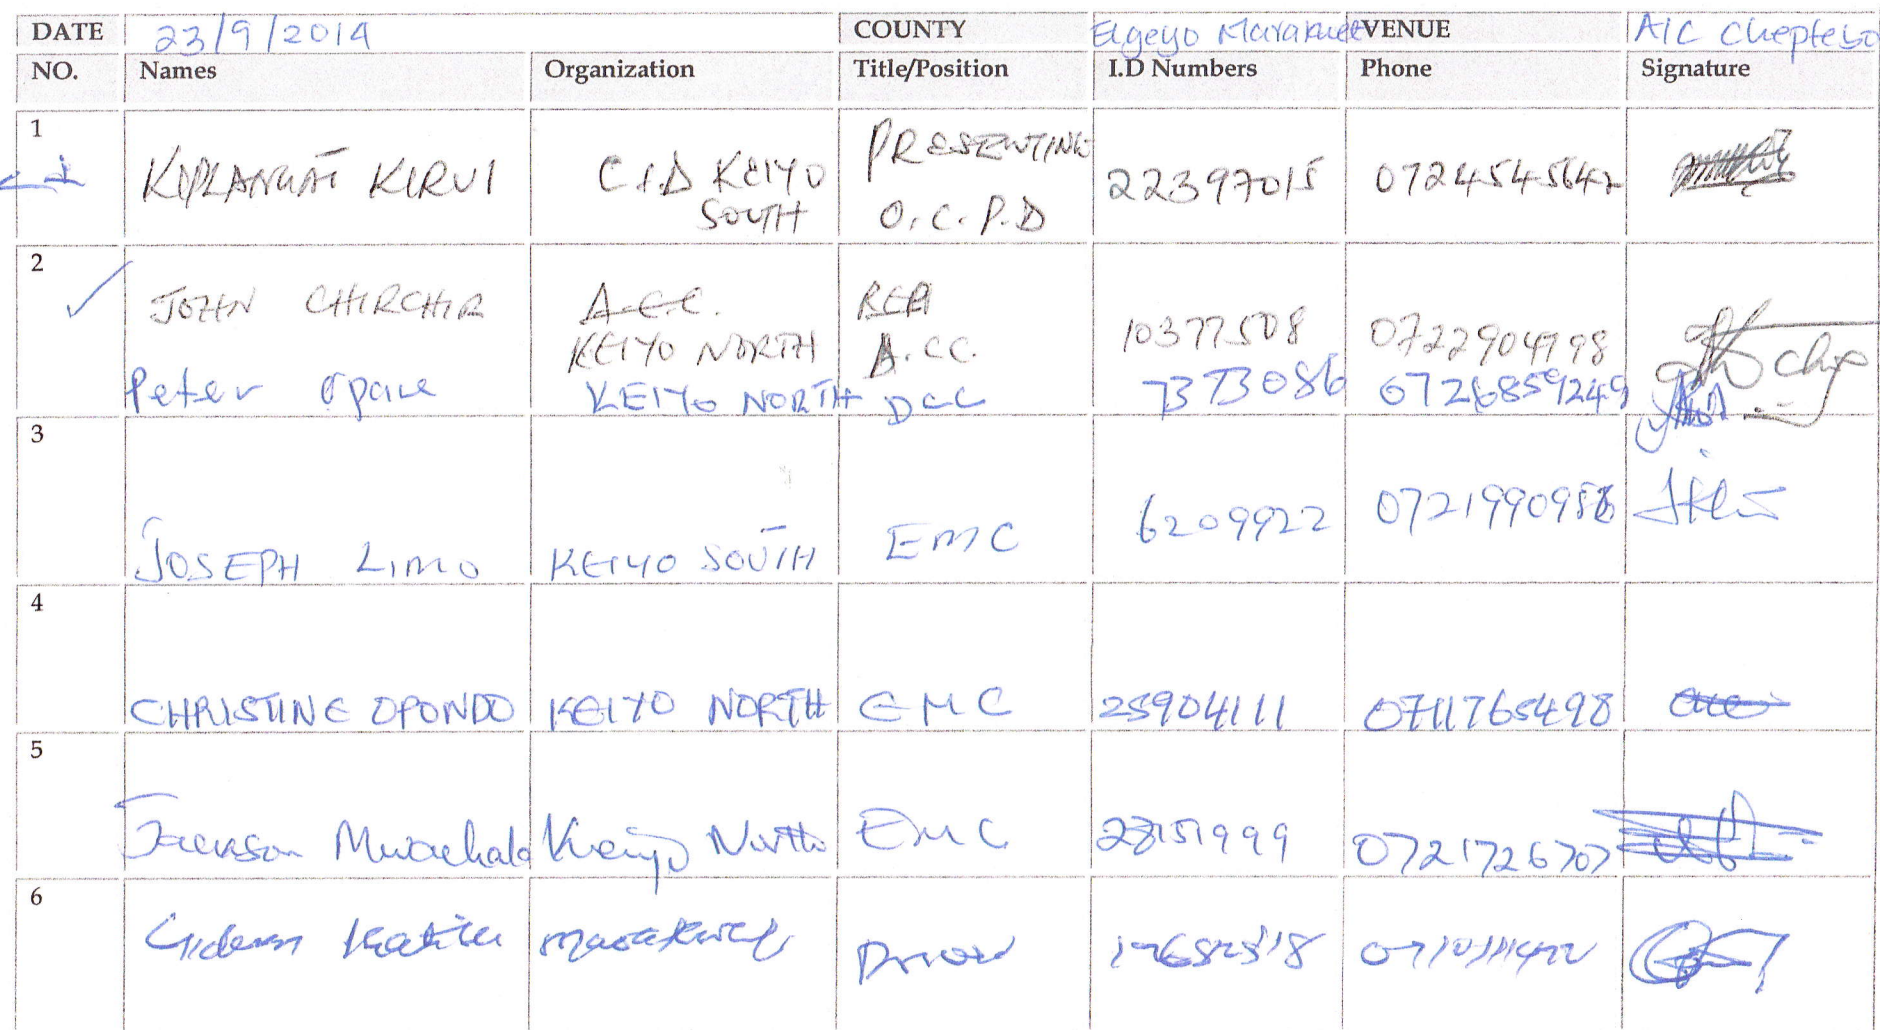 DATE 23/9/2019 COUNTY Elgeyo Marakwet VENUE AIC Cheptebo
NO. Names Organization Title/Position I.D Numbers Phone Signature
1
KIPLANGAT KIRUI C.I.D KEIYO SOUTH PRESENTING O.C.P.D 22397015 0724545642
2
JOHN CHIRCHIR A.C.C. KEIYO NORTH REP A.CC. 10377508 0722904998
Peter KEIYO NORTH DCC 7373086 0726859249
3
JOSEPH LIMO KEIYO SOUTH EMC 6209922
4
CHRISTINE OPONDO KEIYO NORTH EMC 25904111 0711765498
5
Jackson Keiyo North EMC 28151999 0721726707
6
Gideon Marakwet Driver